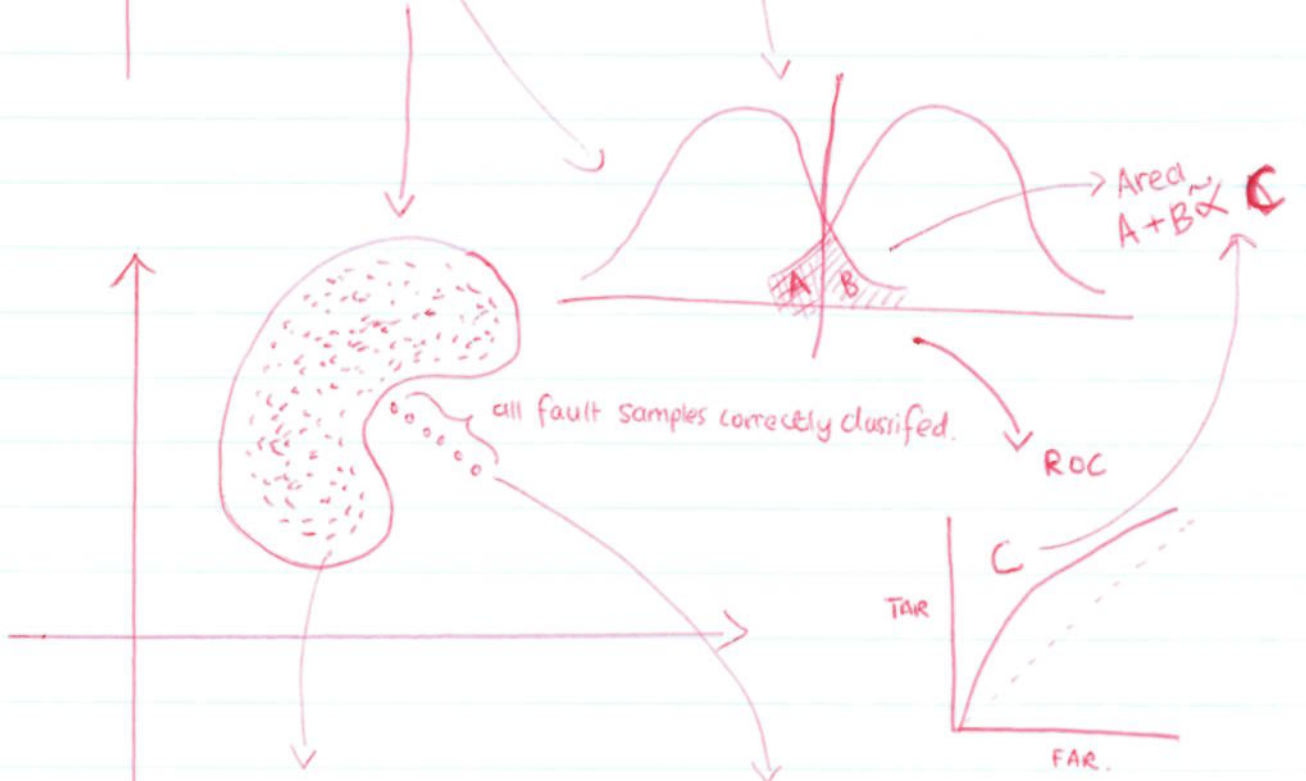 Area
A+B ∝̃ C
A
B
all fault samples correctly classifed.
ROC
C
TAR
FAR.